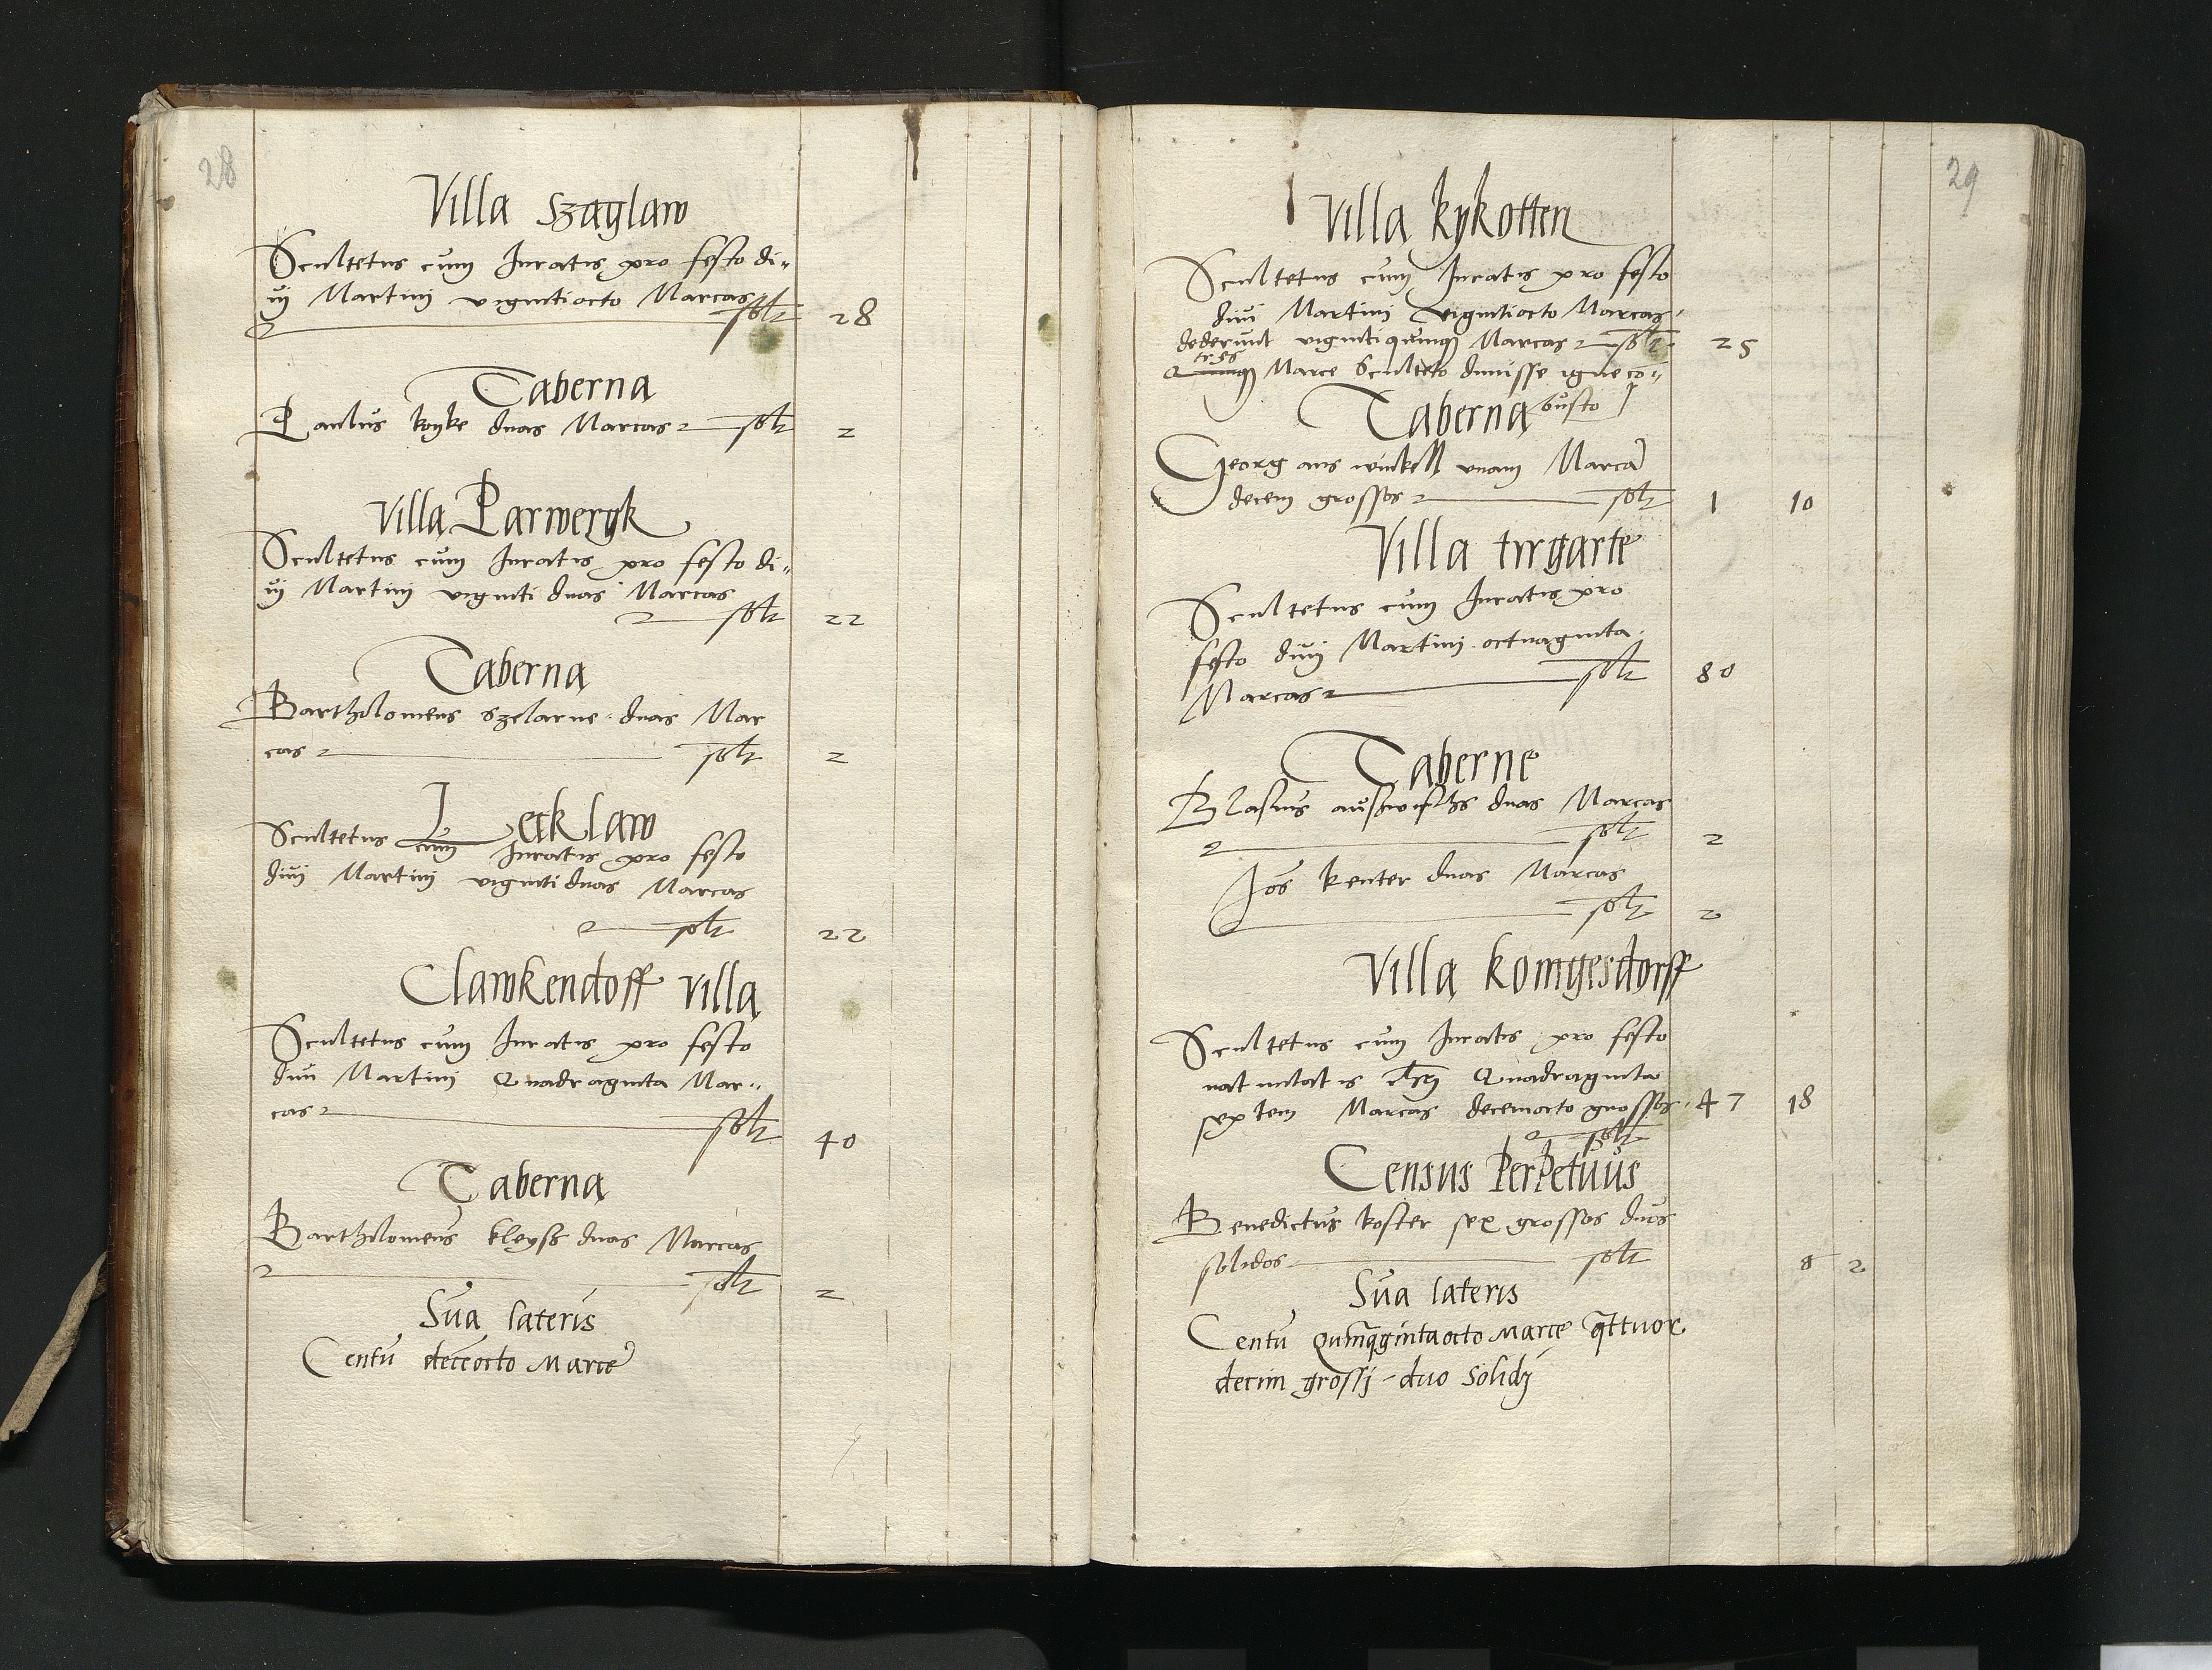 28
Villa szaglaw
Scultetus cum Iuratis pro festo di„
uj Martini vigintiocto Marcas
solt 28
Taberna
Paulus koyke duas Marcas solt 2
Villa Parwergk
Scultetus cum Iuratis pro festo di„
uj Martinj viginti duas Marcas
solt 22
Taberna
Bartholomeus szelarne duas Mar
cas solt 2
Lecklaw
Scultetus cum Iuratis pro festo
diuj Martinj viginti duas Marcas
solt 22
Clawkendoff villa
Scultetus cum Iuratis pro festo
diui Martinj Quadraginta Mar„
cas solt 40
Taberna
Bartholomeus kleyss duas Marcas
solt 2
Sūa lateris
Centū deceōcto Marce
29
Villa kykotten
Scultetus cum Iuratis pro festo
diui Martini vigintiocto Marcas
dederunt vigintiquinq Marcas solt 25
tres
Marce Sculteto dimisse igne cō„
busto
Taberna
Georg ans winkell vnam Marcā
decem grossos solt 1 10
Villa tirgarte
Scultetus cum Iuratis pro
festo diuj Martinj octuaginta
Marcas solt 80
Taberne
Blasius duas Marcas
solt 2
Jos kenter duas Marcas
solt 2
Villa Konigesdorff
Scultetus cum Iuratis pro festo
natiuitatis Quadraginta
septem Marcas decemocto grossos 47 18
solt
Census Perpetuus
Benedictus koster sex grossos duos
solidos solt 6 2
Sūa lateris
Centū Quinq̄gintaocto Marce q̄ttuor
decim grossj duo solidj